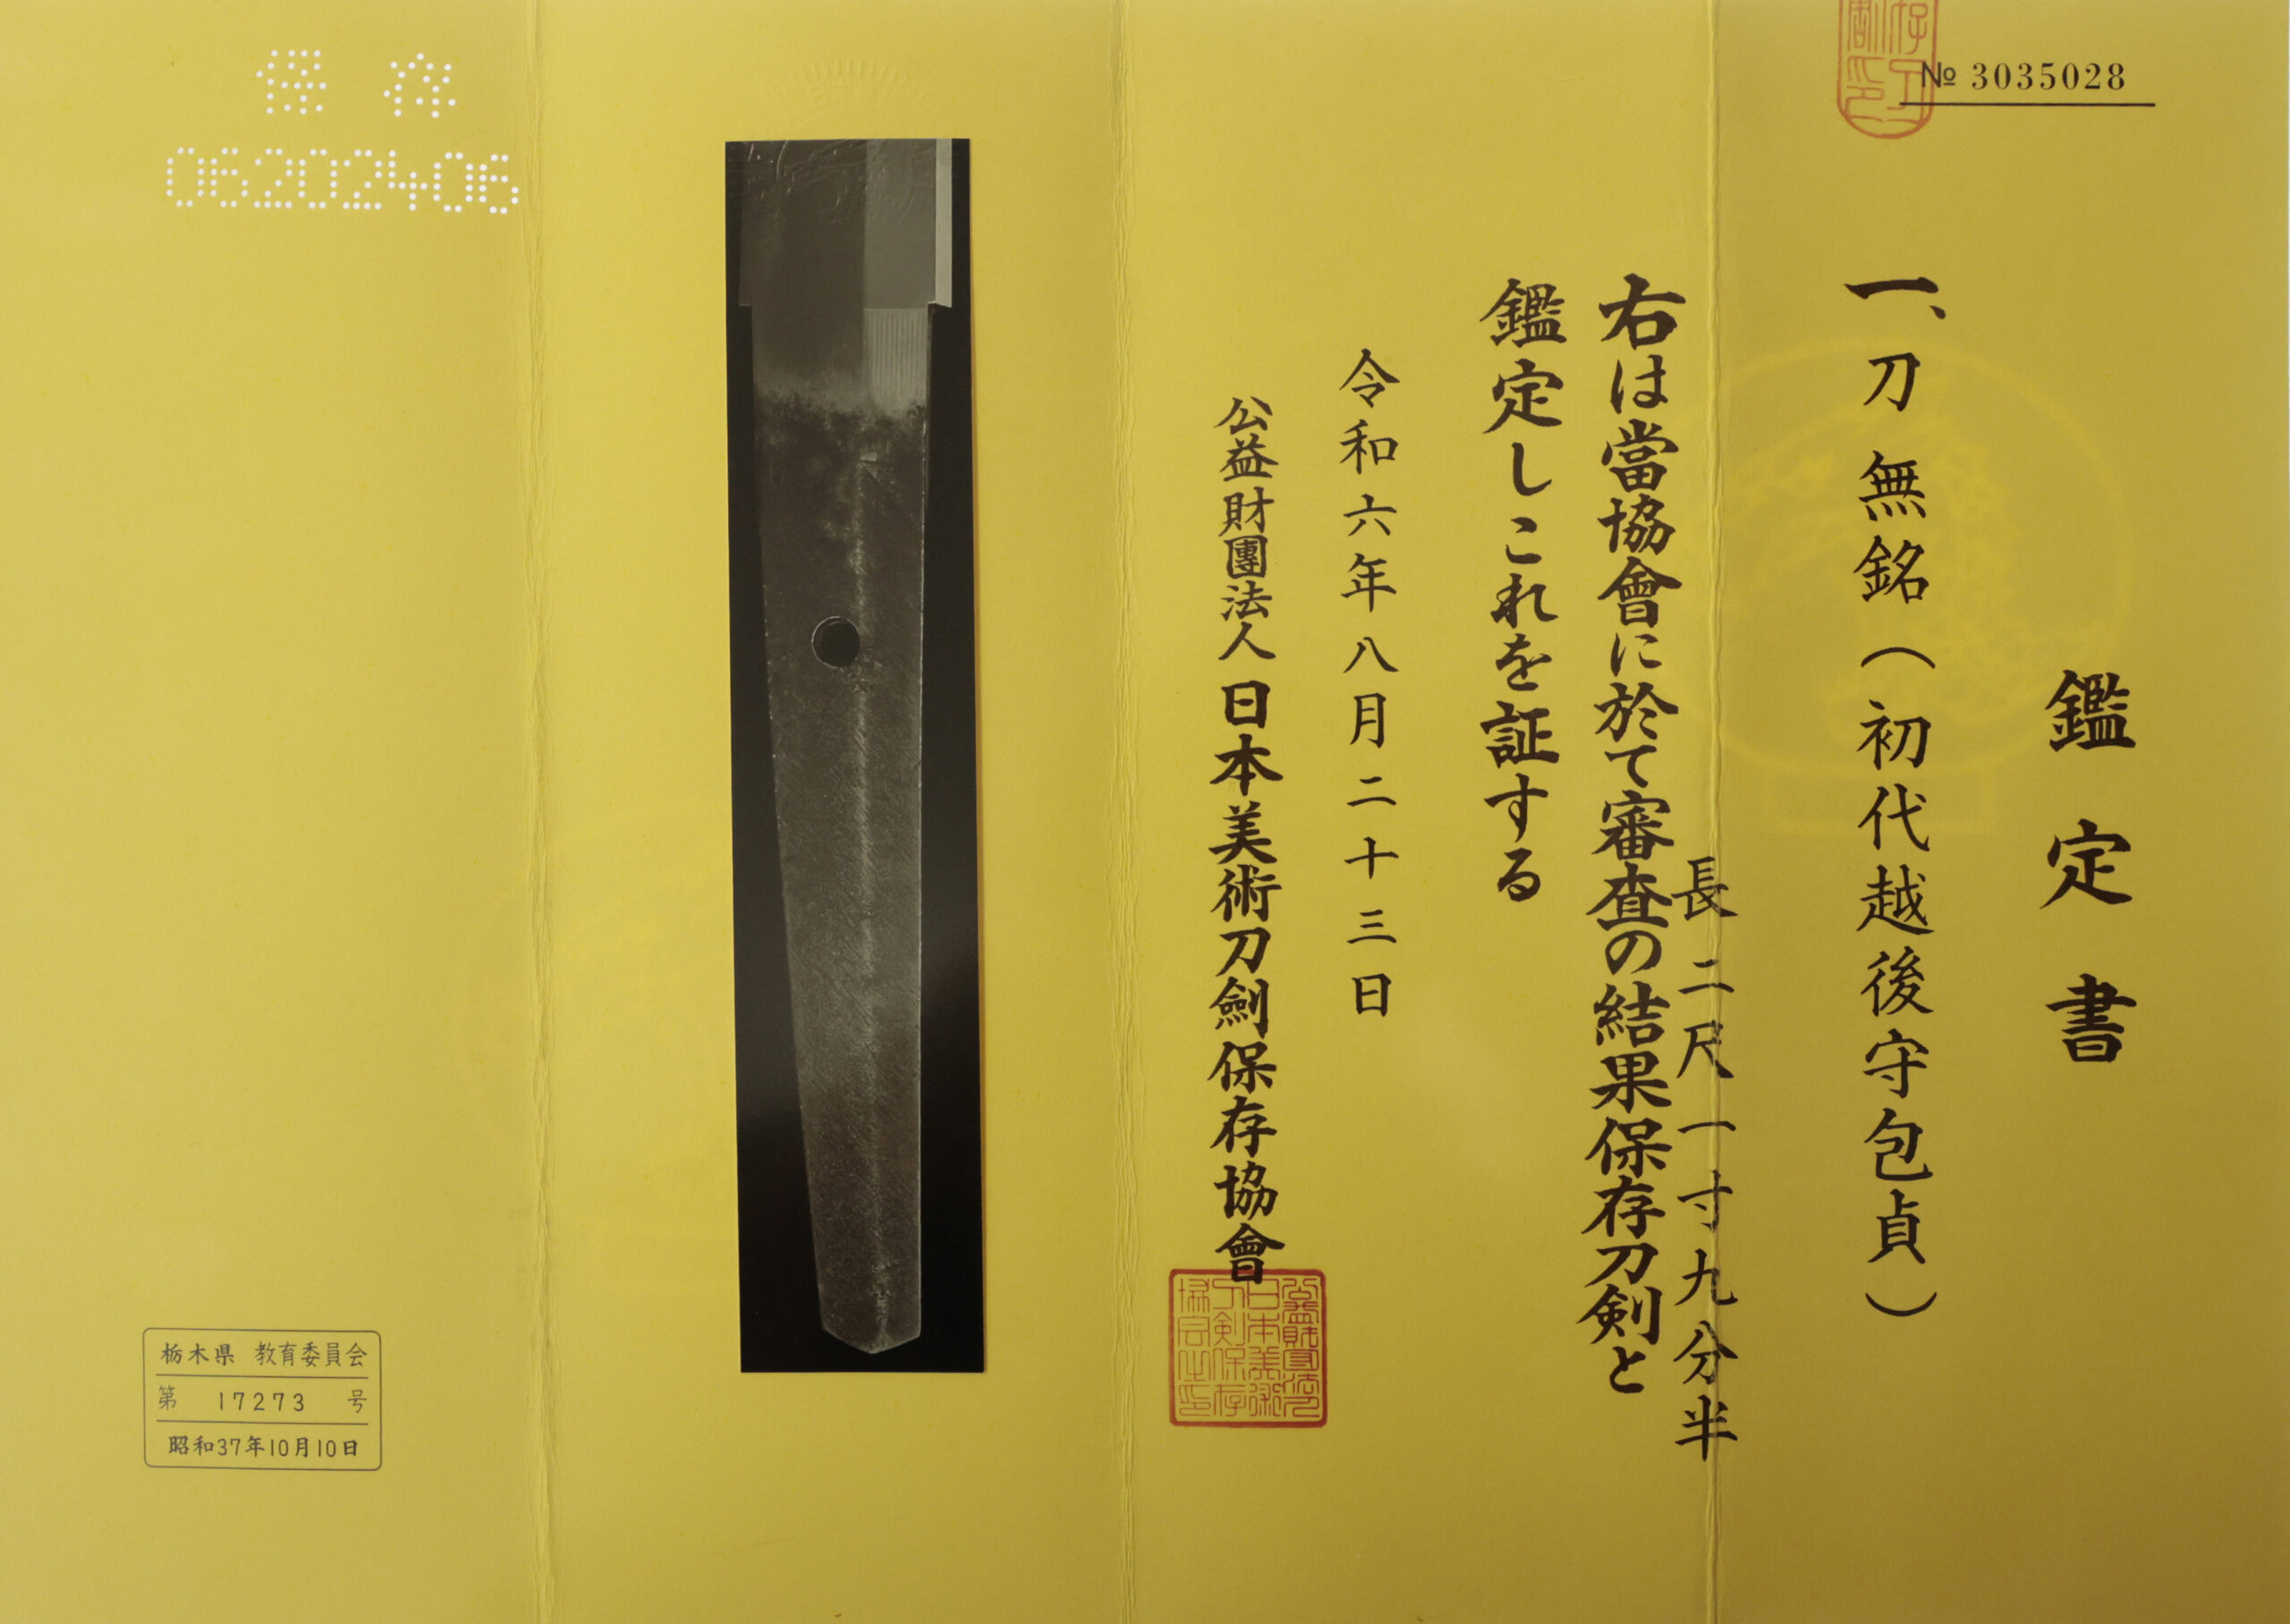 № 3035028
鑑定書
一、刀 無銘（初代越後守包貞）
長二尺一寸九分半
右は當協會に於て審査の結果保存刀剣と
鑑定しこれを証する
令和六年八月二十三日
公益財團法人 日本美術刀劍保存協會
保存
06202406
栃木県 教育委員会
第 17273 号
昭和37年10月10日